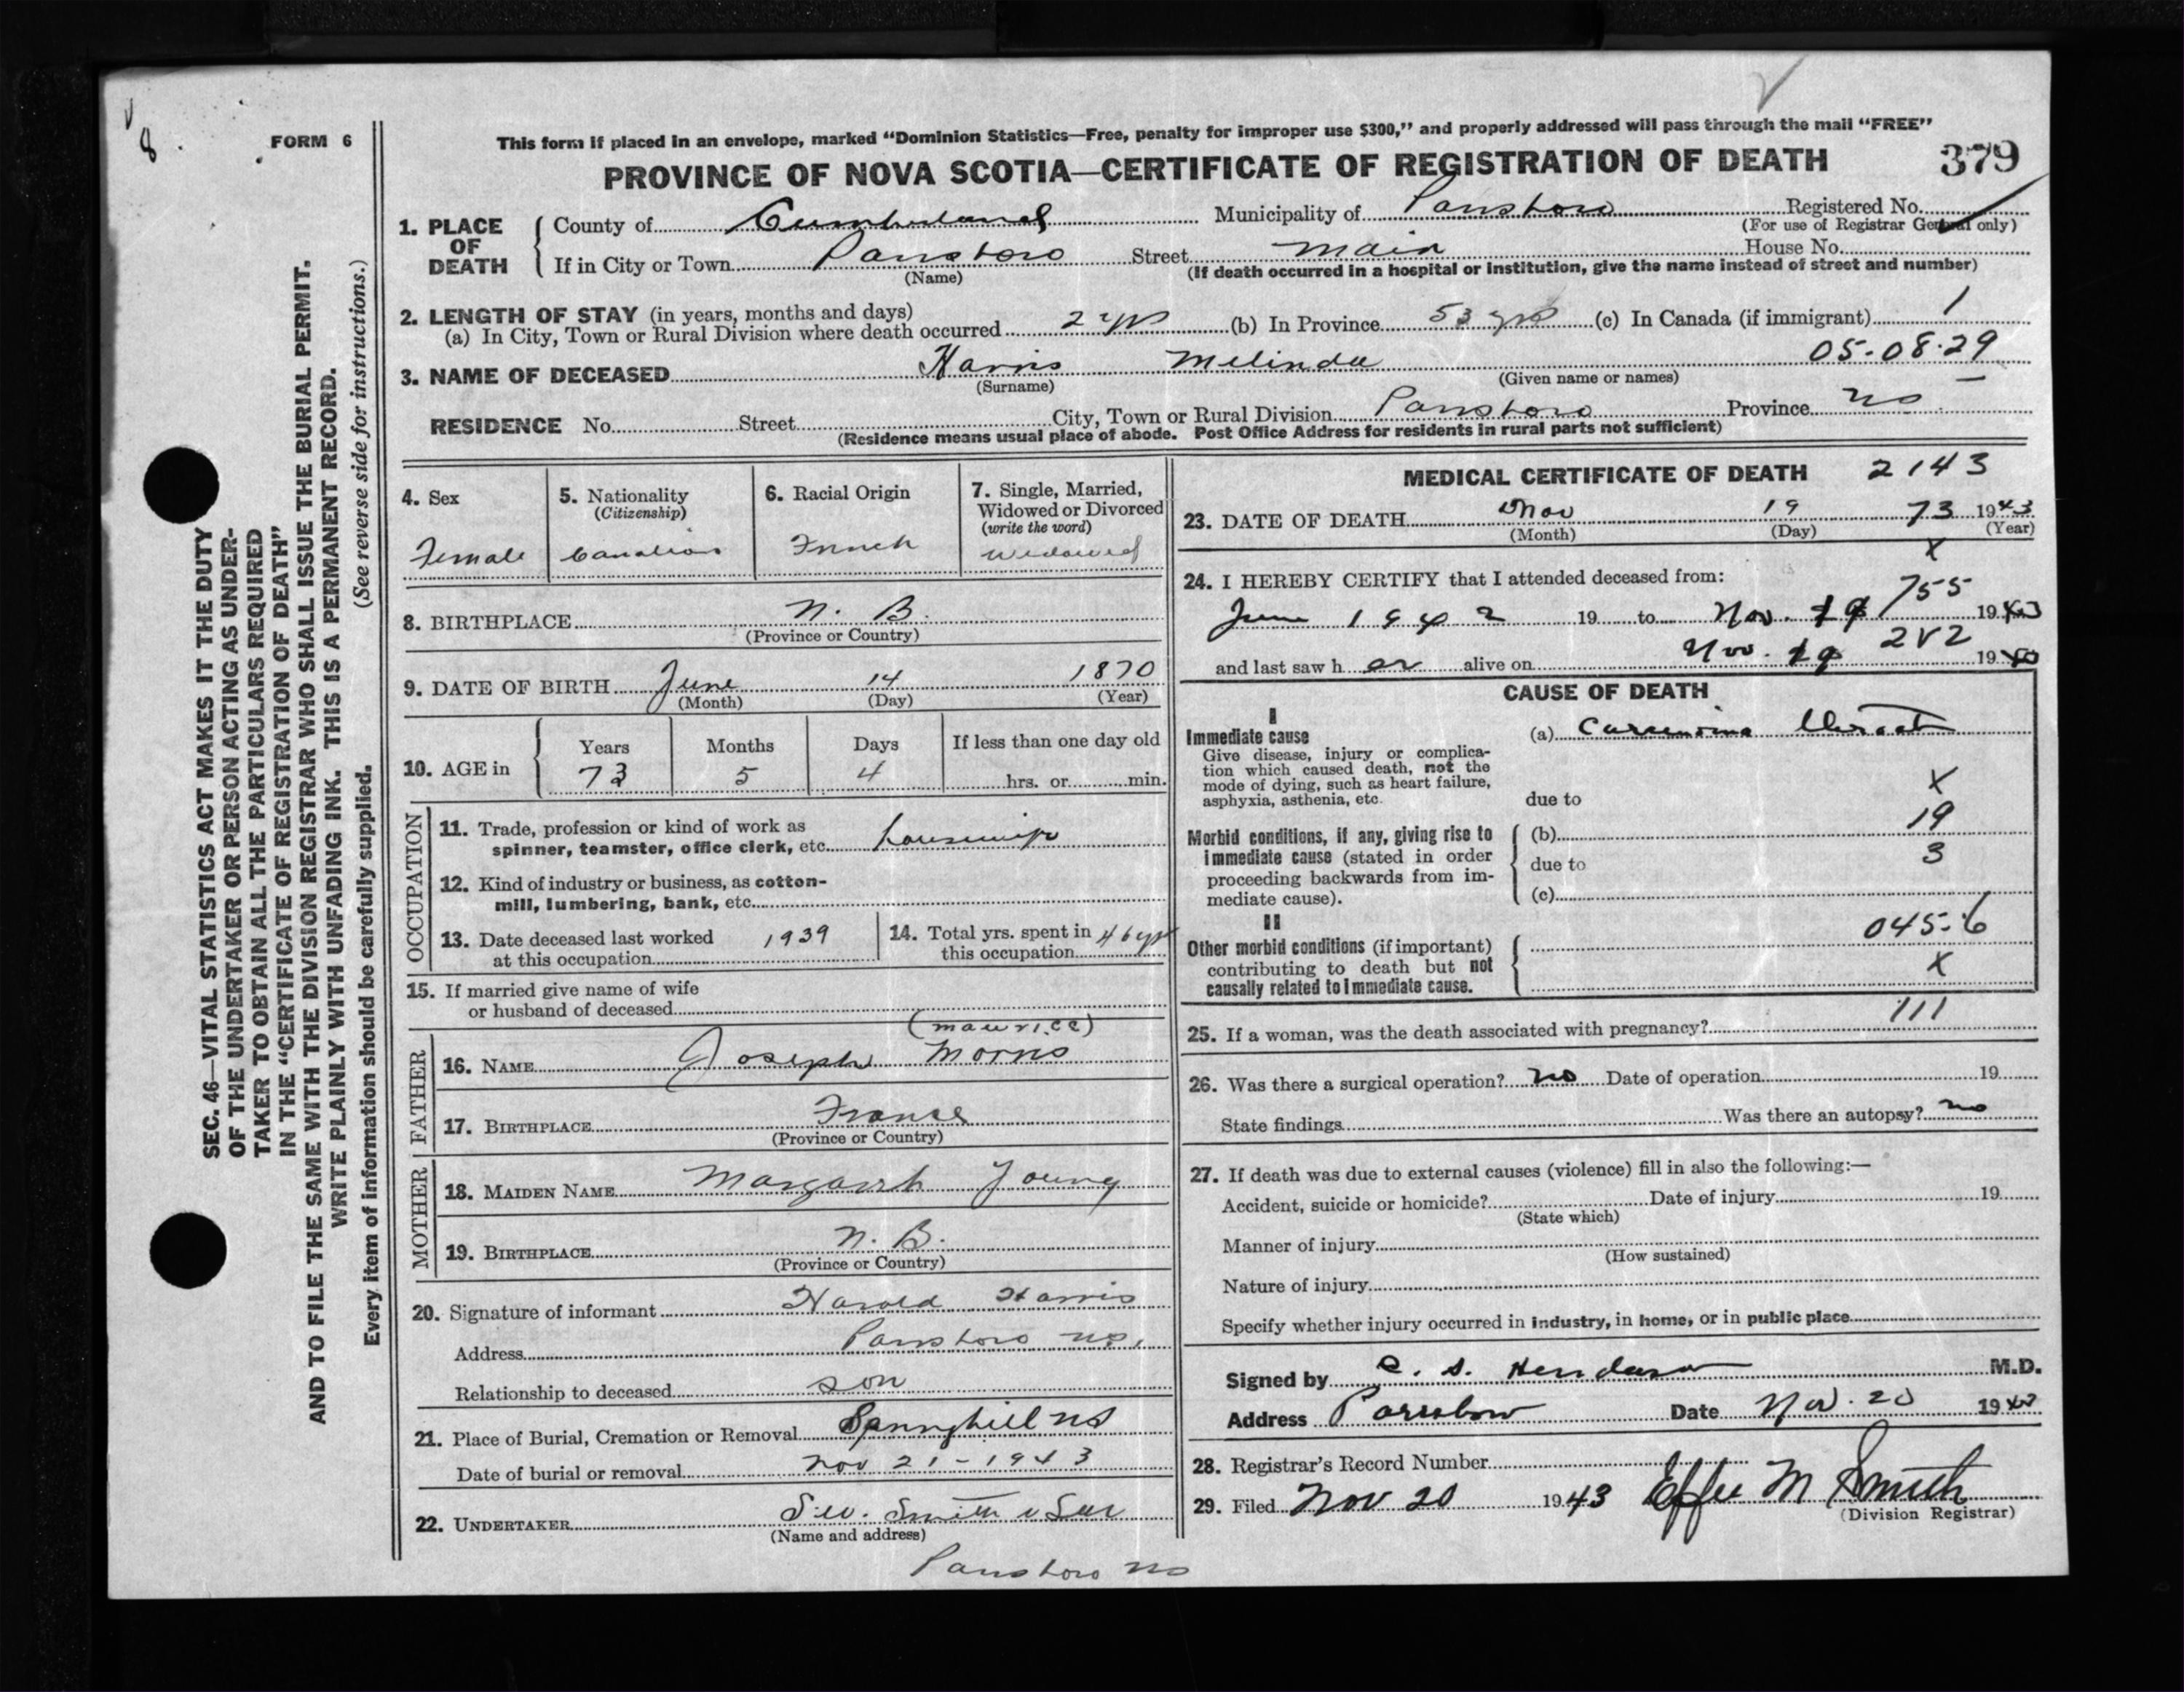 8
FORM 6
This form if placed in an envelope, marked “Dominion Statistics—Free, penalty for improper use $300,” and properly addressed will pass through the mail “FREE”
PROVINCE OF NOVA SCOTIA—CERTIFICATE OF REGISTRATION OF DEATH
379
1. PLACE OF DEATH
County of Cumberland Municipality of Parrsboro Registered No.
(For use of Registrar General only)
If in City or Town Parrsboro Street Main House No.
(Name) (If death occurred in a hospital or institution, give the name instead of street and number)
2. LENGTH OF STAY (in years, months and days)
(a) In City, Town or Rural Division where death occurred 2 yrs (b) In Province 53 yrs (c) In Canada (if immigrant) 1
05-08-29
3. NAME OF DECEASED Harris Melinda
(Surname) (Given name or names)
RESIDENCE No. Street City, Town or Rural Division Parrsboro Province NS
(Residence means usual place of abode. Post Office Address for residents in rural parts not sufficient)
4. Sex
Female
5. Nationality
(Citizenship)
Canadian
6. Racial Origin
French
7. Single, Married,
Widowed or Divorced
(write the word)
Widowed
8. BIRTHPLACE N. B.
(Province or Country)
9. DATE OF BIRTH June 14 1870
(Month) (Day) (Year)
10. AGE in
Years Months Days If less than one day old
73 5 4 hrs. or min.
OCCUPATION
11. Trade, profession or kind of work as
spinner, teamster, office clerk, etc. housewife
12. Kind of industry or business, as cotton-
mill, lumbering, bank, etc.
13. Date deceased last worked 1939
at this occupation
14. Total yrs. spent in 46 yrs
this occupation
15. If married give name of wife
or husband of deceased
(maurice)
FATHER
16. NAME Joseph Morris
17. BIRTHPLACE France
(Province or Country)
MOTHER
18. MAIDEN NAME Margaret Young
19. BIRTHPLACE N. B.
(Province or Country)
20. Signature of informant Harold Harris
Address Parrsboro NS.
Relationship to deceased son
21. Place of Burial, Cremation or Removal Springhill NS
Date of burial or removal Nov 21-1943
22. UNDERTAKER Smith
(Name and address)
Parrsboro NS
MEDICAL CERTIFICATE OF DEATH 2143
23. DATE OF DEATH Nov 19 73 1943
(Month) (Day) (Year)
X
24. I HEREBY CERTIFY that I attended deceased from:
755
June 1942 19 to Nov. 19 1943
and last saw her alive on Nov. 19 2V2 1943
CAUSE OF DEATH
I
Immediate cause
Give disease, injury or complica-
tion which caused death, not the
mode of dying, such as heart failure,
asphyxia, asthenia, etc.
(a) Carcinoma Throat
X
due to
19
Morbid conditions, if any, giving rise to
immediate cause (stated in order
proceeding backwards from im-
mediate cause).
(b)
3
due to
(c)
II
045-6
Other morbid conditions (if important)
contributing to death but not
causally related to immediate cause.
X
111
25. If a woman, was the death associated with pregnancy?
26. Was there a surgical operation? No Date of operation 19
State findings Was there an autopsy? no
27. If death was due to external causes (violence) fill in also the following:—
Accident, suicide or homicide? Date of injury 19
(State which)
Manner of injury
(How sustained)
Nature of injury
Specify whether injury occurred in industry, in home, or in public place
Signed by M.D.
Address Parrsboro Date Nov. 20 1943
28. Registrar's Record Number
29. Filed Nov 20 1943 Effie M Smith
(Division Registrar)
SEC. 46—VITAL STATISTICS ACT MAKES IT THE DUTY
OF THE UNDERTAKER OR PERSON ACTING AS UNDER-
TAKER TO OBTAIN ALL THE PARTICULARS REQUIRED
IN THE “CERTIFICATE OF REGISTRATION OF DEATH”
AND TO FILE THE SAME WITH THE DIVISION REGISTRAR WHO SHALL ISSUE THE BURIAL PERMIT.
WRITE PLAINLY WITH UNFADING INK. THIS IS A PERMANENT RECORD.
(See reverse side for instructions.)
Every item of information should be carefully supplied.